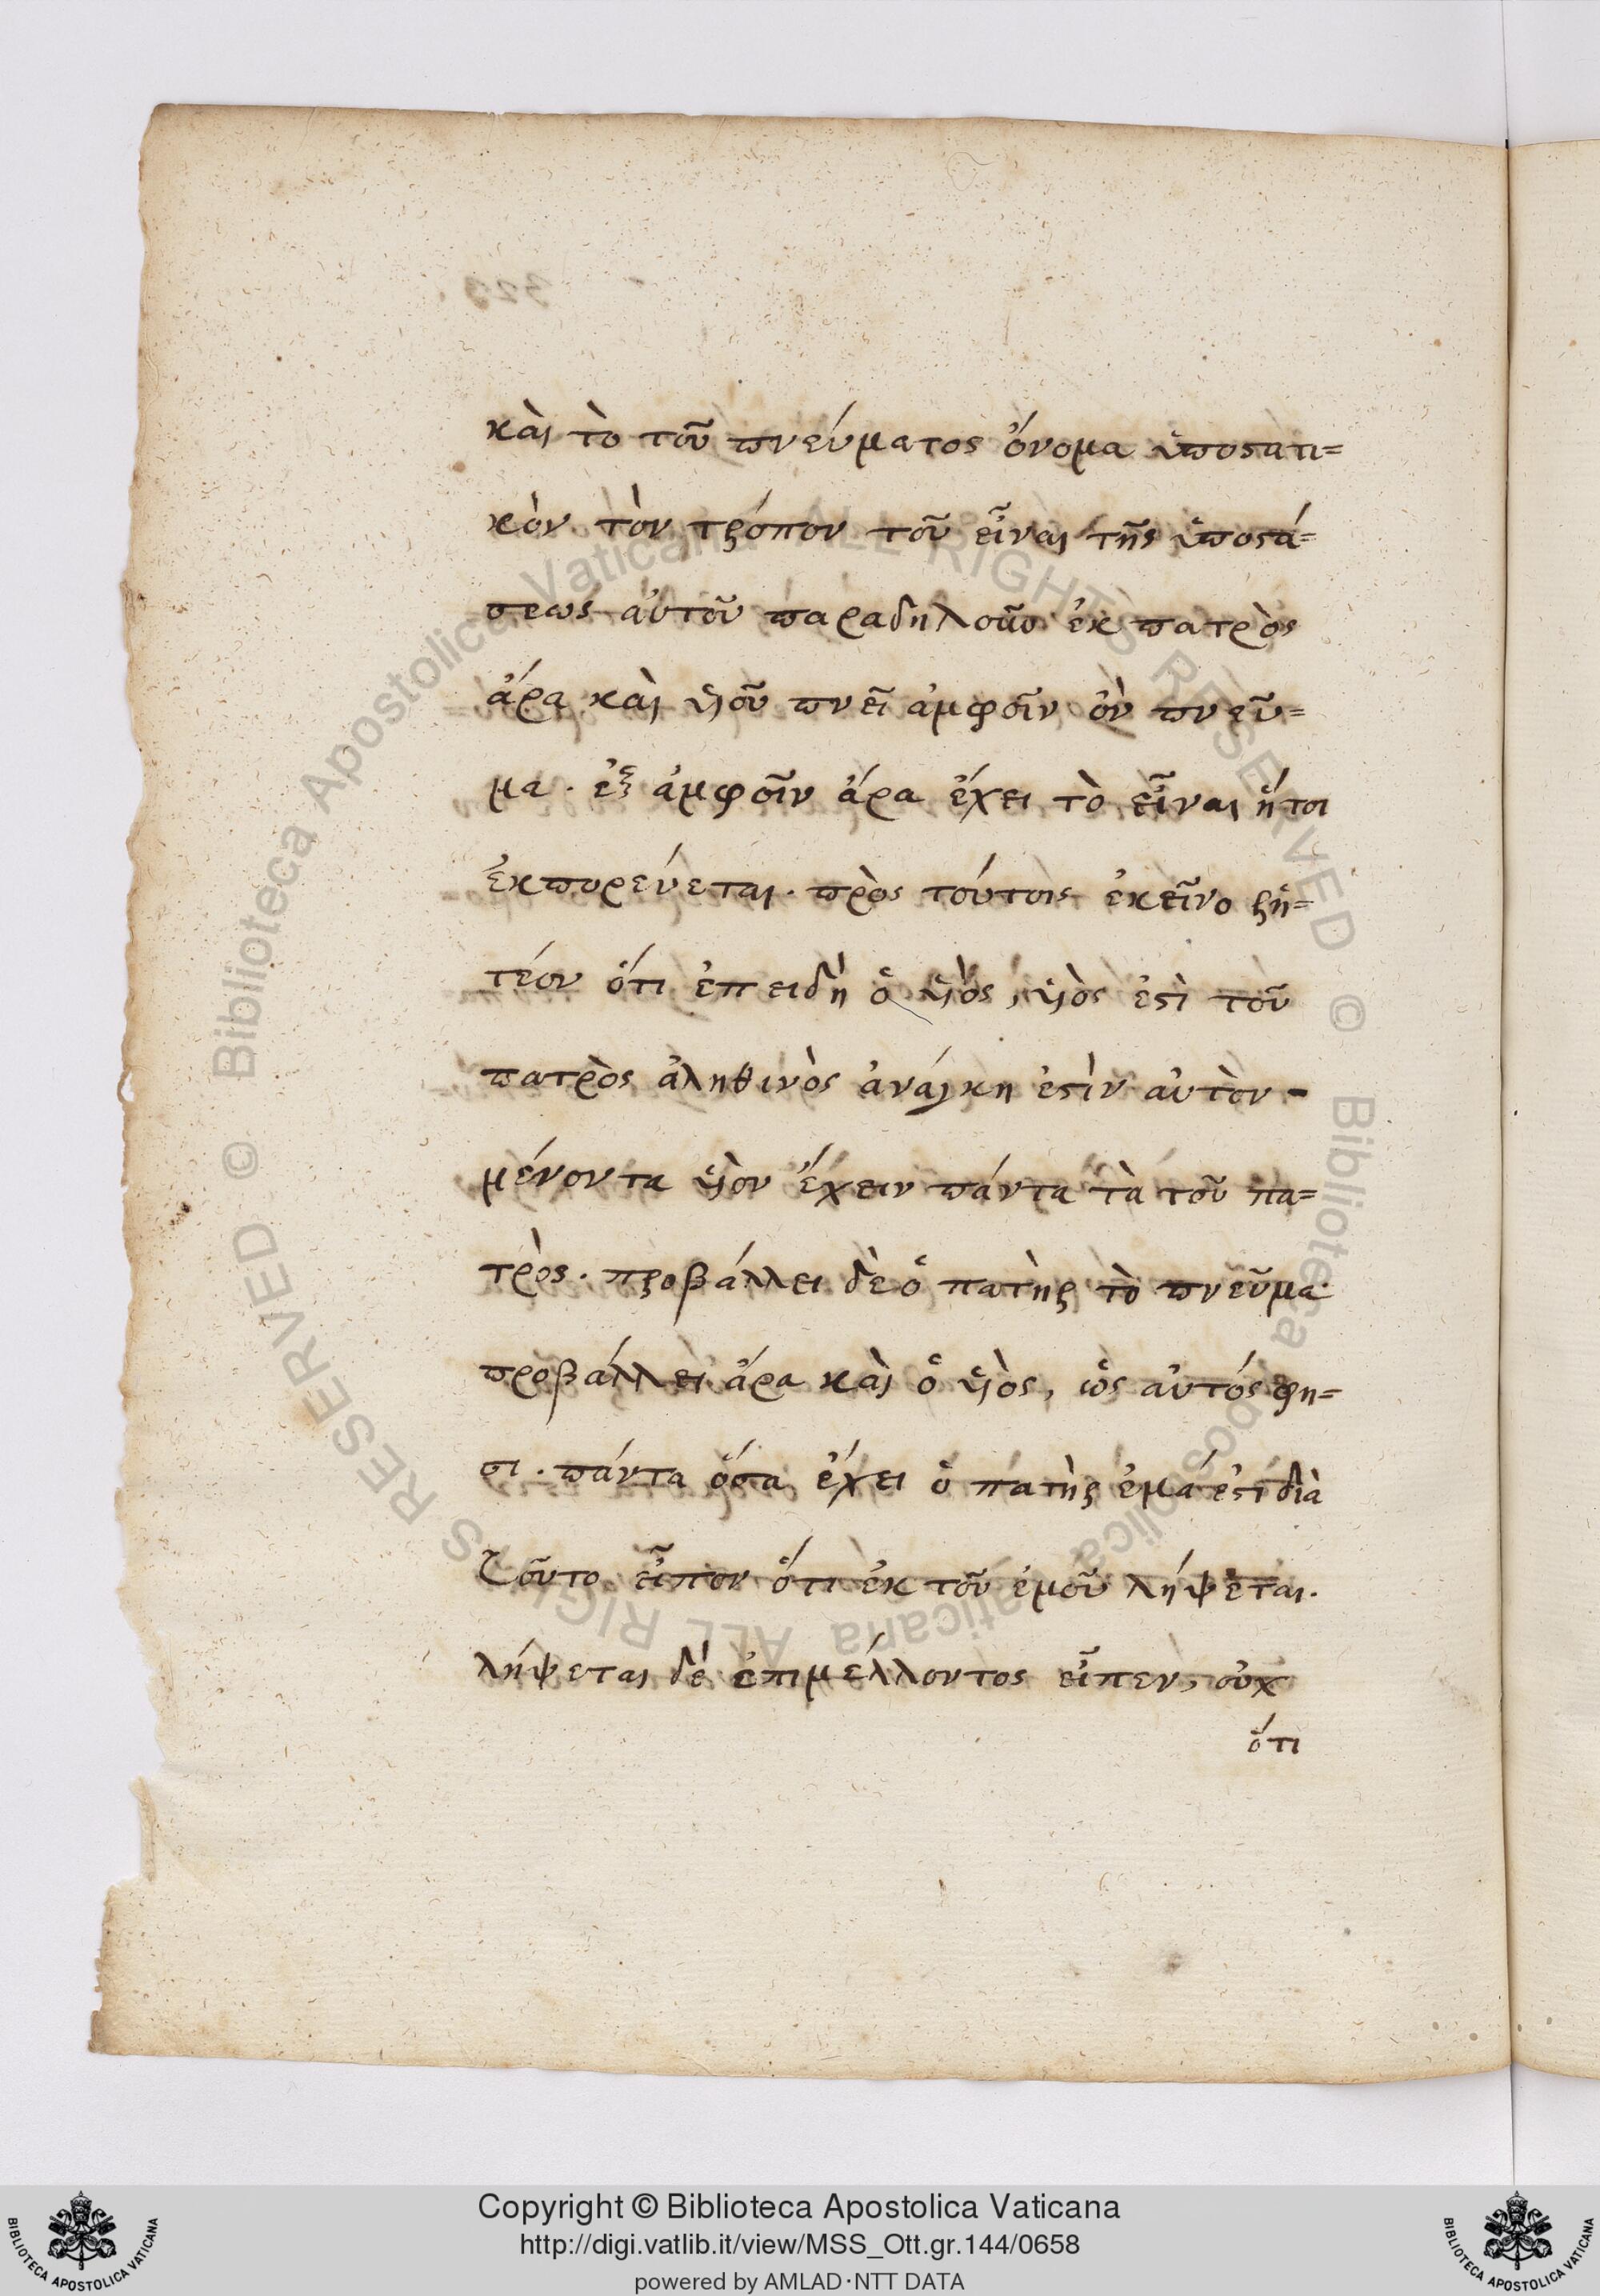 καὶ τὸ τοῦ πνεύματος ὄνομα ὑποστατι=
κὸν τὸν τρόπον τοῦ εἶναι τῆς ὑποστά=
σεως αὐτοῦ παραδηλοῦν ἐκ πατρὸς
ἄρα καὶ ὑιοῦ πνεῖ ἀμφοῖν ὂν πνεῦ=
μα. ἐξ ἀμφοῖν ἄρα ἔχει τὸ εἶναι ἤτοι
ἐκπορεύεται. πρὸς τούτοις ἐκεῖνο ῥη=
τέον ὅτι ἐπειδὴ ὁ ὑιὸς, ὑιὸς ἐστὶ τοῦ
πατρὸς ἀληθινὸς ἀνάγκη ἐστὶν αὐτὸν -
μένοντα ὑιὸν ἔχειν πάντα τὰ τοῦ πα=
τρὸς. προβάλλει δὲ ὁ πατὴρ τὸ πνεῦμα
προβάλλει ἄρα καὶ ὁ ὑιὸς, ὡς αὐτός φη=
σι. πάντα ὅσα ἔχει ὁ πατὴρ ἐμά ἐστι διὰ
τοῦτο εἶπον ὅτι ἐκ τοῦ ἐμοῦ λήψεται.
λήψεται δὲ ἐπιμέλλοντος εἶπεν, οὐχ
ὅτι
323
© Biblioteca Apostolica Vaticana ALL RIGHTS RESERVED © Biblioteca Apostolica Vaticana ALL RIGHTS RESERVED
Copyright © Biblioteca Apostolica Vaticana
http://digi.vatlib.it/view/MSS_Ott.gr.144/0658
powered by AMLAD·NTT DATA
BIBLIOTECA APOSTOLICA VATICANA
BIBLIOTECA APOSTOLICA VATICANA